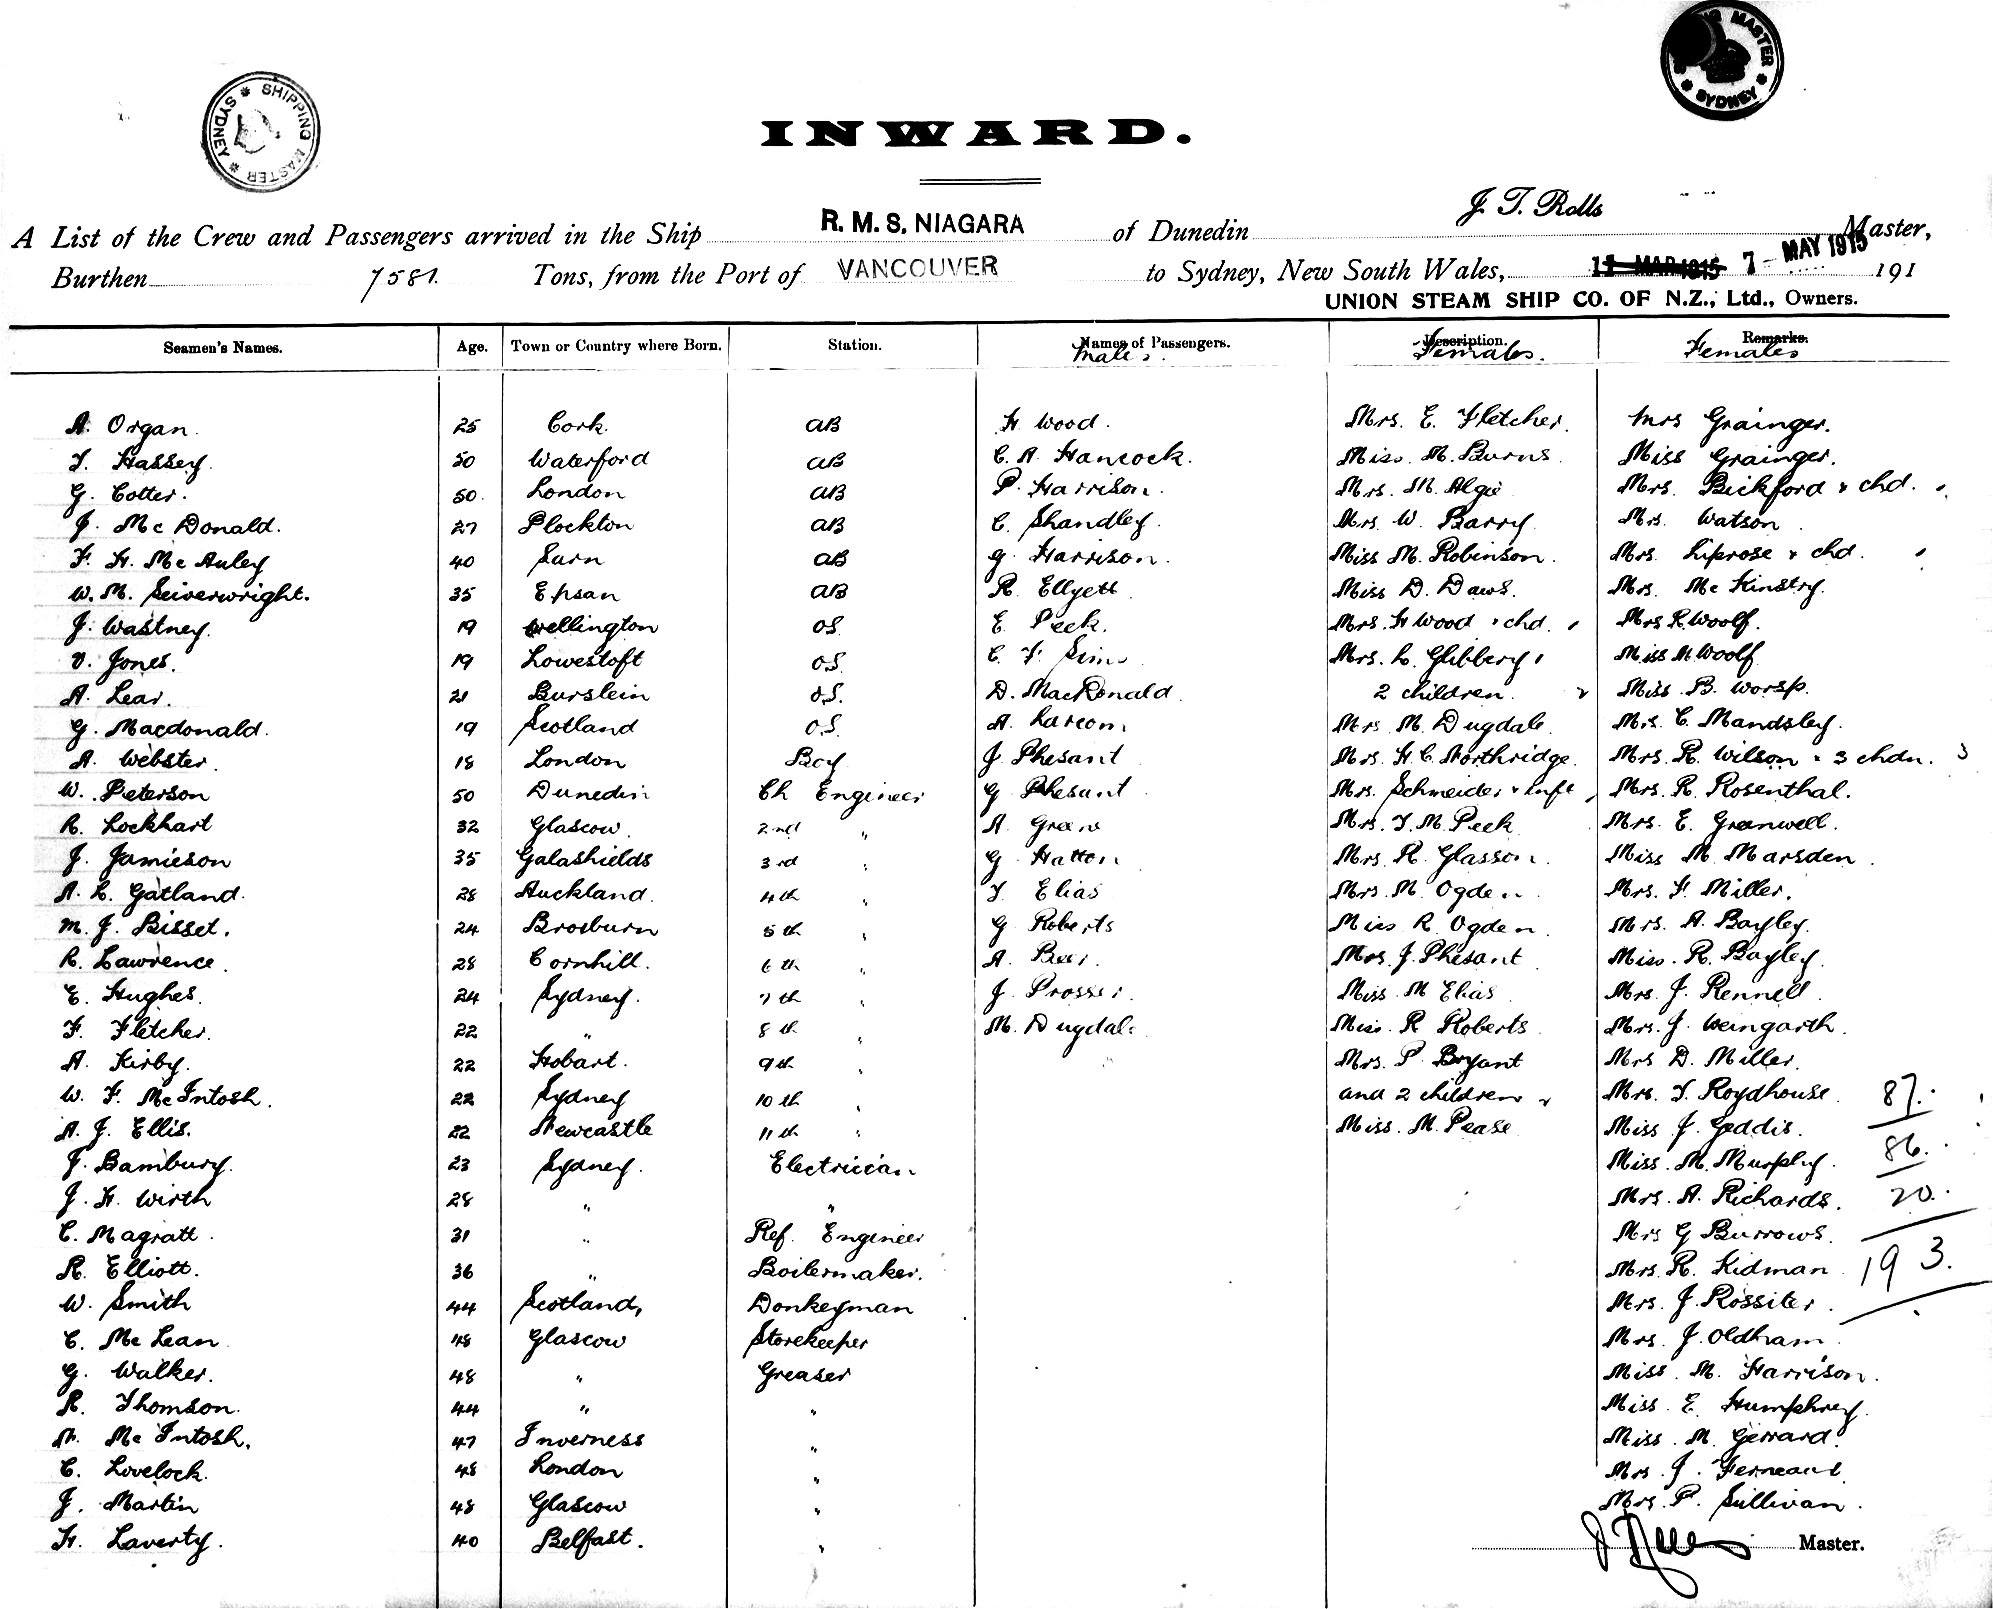 SHIPPING MASTER
SYDNEY
MASTER
SYDNEY
INWARD.
J. T. Rolls
A List of the Crew and Passengers arrived in the Ship R. M. S. NIAGARA of Dunedin Master,
Burthen 7581. Tons, from the Port of VANCOUVER to Sydney, New South Wales, MAR 1915 7 - MAY 1915 191
UNION STEAM SHIP CO. OF N.Z., Ltd., Owners.
Seamen's Names. Age. Town or Country where Born. Station. Names of Passengers. Description. Remarks.
Males. Females. Females
A. Organ. 25 Cork. AB H Wood. Mrs. E. Fletcher. Mrs Grainger.
T. Hassey. 50 Waterford AB C. A. Hancock. Miss. M. Burns. Miss Grainger.
G. Cotter. 50. London AB P. Harrison. Mrs. M. Algie Mrs. Bickford & chd.
J. McDonald. 27 Plockton AB C. Shandley. Mrs. W. Barry Mrs. Watson
F. H. McAuley 40 Sarn AB G. Harrison. Miss M. Robinson. Mrs. Liprose & chd.
W. M. Seiverwright. 35 Epsan AB R. Ellyett Miss D. Daws. Mrs. McKinstry.
J. Wastney. 19 Wellington O.S. E. Peek. Mrs. H Wood & chd. Mrs R. Woolf.
V. Jones. 19 Lowestoft O.S. C. F. Sims Mrs. L. Glibbery & Miss M Woolf
A. Lear. 21 Burslein O.S. D. MacRonald. 2 children. 2 Miss. B. Worsp.
G. Macdonald. 19 Scotland O.S. A. Larcom. Mrs M. Dugdale. Mrs. C. Mandsley.
A. Webster. 18 London Boy J. Phesant Mrs. H. C. Northridge. Mrs. R. Wilson & 3 chdn. 3
W. Peterson 50 Dunedin Ch Engineer G. Phesant Mrs. Schmeider & Inft Mrs. R. Rosenthal.
R. Lockhart 32 Glascow. 2nd " A Green Mrs. T. M. Peek Mrs. E. Greenwell.
J. Jamieson 35 Galashields 3rd " G Hatton Mrs. R. Glasson. Miss M. Marsden.
A. L. Gatland. 28 Auckland. 4th " T Elias Mrs. M. Ogden Mrs. F. Miller.
M. J. Bisset. 24 Broxburn 5th " G Roberts Miss R. Ogden. Mrs. A. Bayley.
R. Lawrence. 28 Cornhill. 6th " A. Beer. Mrs. J. Phesant Miss. R. Bayley.
E. Hughes. 24 Sydney. 7th " J. Prosser. Miss. M Elias Mrs. J. Rennell.
F. Fletcher. 22 " 8th " M. Dugdale Miss. R Roberts. Mrs. J. Weingarth.
A. Kirby. 22 Hobart. 9th " Mrs. P. Bryant Mrs D. Miller.
W. F. McIntosh. 22 Sydney 10th " and 2 children 2 Mrs. T. Roydhouse. 87.
A. J. Ellis. 22 Newcastle 11th " Miss. M. Pease Miss J. Geddis.
J. Bambury. 23 Sydney. Electrician Miss. M. Murphy. 86.
J. H. Wirth 28 " " Mrs. A. Richards. 20.
C. Magratt. 31 " Ref. Engineer Mrs G Burrows.
R. Elliott. 36 " Boilermaker. Mrs. R. Kidman 193.
W. Smith 44 Scotland, Donkeyman Mrs. J. Rossiter.
C. McLean 48 Glascow Storekeeper Mrs. J. Oldham.
G. Walker. 48 " Greaser Miss. M. Harrison.
R. Thomson. 44 " " Miss. E. Humphrey.
A. McIntosh. 47 Inverness " Miss. M. Gerrard.
C. Lovelock. 48 London " Mrs. J. Ferneaux
J. Martin 48 Glascow " Mrs. P. Sullivan.
H. Laverty. 40 Belfast. "
Master.